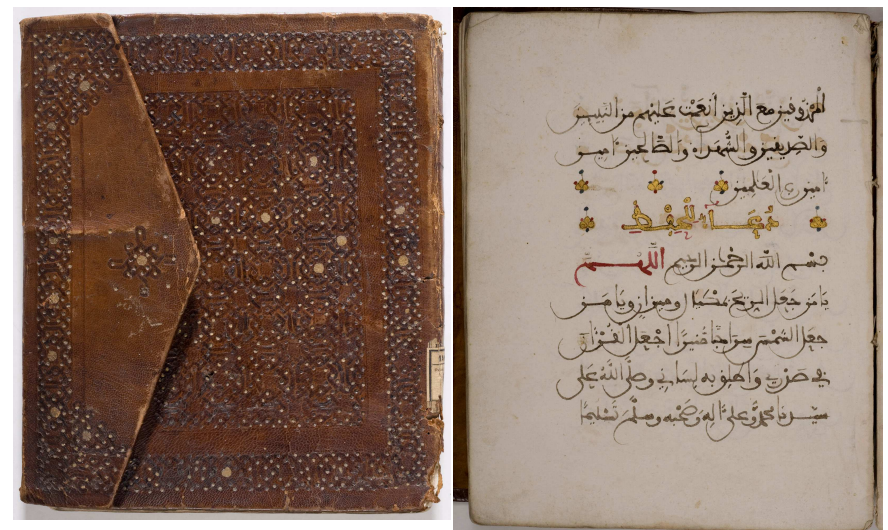 المرزوقين مع الذين أنعمت عليهم من النبيين
والصديقين والشهداء والصالحين ءامين
ءامين رب العلمين
دعاء الحفظ
بسم الله الرحمن الرحيم اللهم
يا من جعل الريح بمكيال وميزان ويا من
جعل الشمس سراجا منيرا اجعل القرءان
في صدري واطلق به لساني وصلى الله على
سيدنا محمد وعلى ءاله وصحبه وسلم تسليما